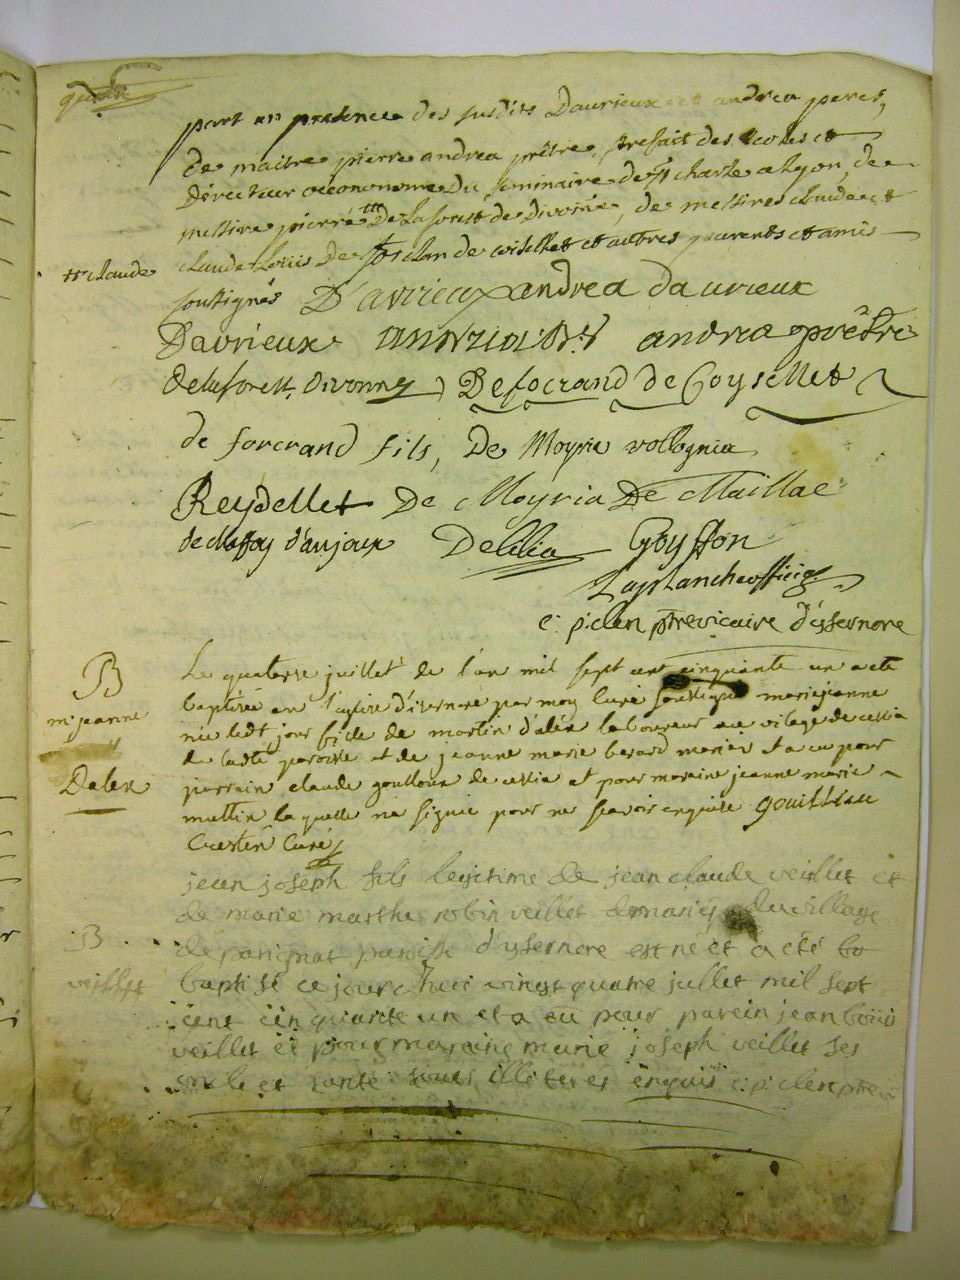 part en presence des susdits Daurieux et andrea peres,
de maitre pierre andrea prêtre, prefait des ecoles et
Directeur oeconome Du seminaire de St charle a lyon, de
messire pierre De la forest de Divonne, de messires claude et
claude Louis De forcran de coisellet et autres parents et amis
claude
soussignés D'arrieux andrea Daurieux
Daurieux andrea prêtre
Delaforest Divonne Deforcrand de Coysellet
de forcrand fils, De Moyria volognia
Reydellet De Moyria De Maillac
d'anjoux Delilia Goyffon
Laplanche officier
c: piclen ptre vicaire d'ysernore
B
m: jeanne
Dalex
Le quatorze juillet de l'an mil sept cent cinquante un a ete
baptisée en l'eglise d'isernore par moy curé soussigné marie jeanne
née ledt jour fille de martin d'alex laboureur au vilage de cessia
de ladte paroisse et de jeanne marie berard mariez et a eu pour
parrain claude gouilloux de cessia et pour maraine jeanne marie
mattin laquelle na signé pour ne scavoir enquise gouilliou
Crestin Curé
B
veillet
jean joseph fils legitime de jean claude veillet et
de marie marthe robin veillet du village
de perignat paroisse d'ysernore est né et a été ba
baptisé ce jourdhui vingt quatre juillet mil sept
cent cinquante un et a eu pour parein jean
veillet et pour maraine marie joseph veillet ses
oncle et tante tous illiteres enquis c: piclen ptre